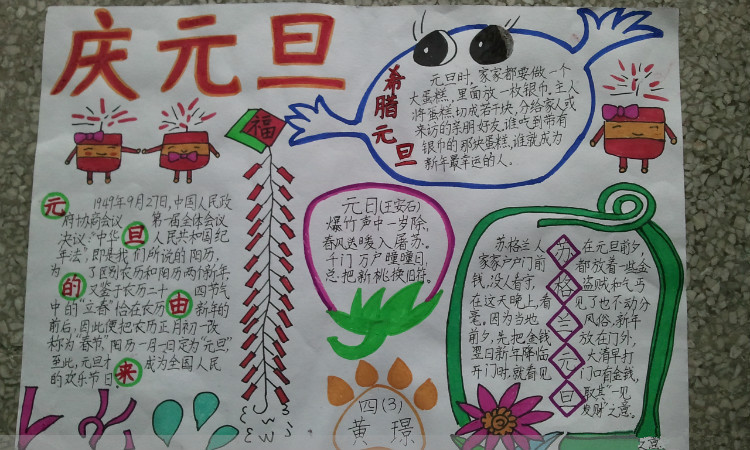 庆元旦
希腊元旦
元旦时，家家都要做一个
大蛋糕，里面放一枚银币，主人
将蛋糕切成若干块，分给家人或
来访的亲朋好友，谁吃到带有
银币的那块蛋糕，谁就成为
新年最幸运的人。
福
元旦的由来
1949年9月27日，中国人民政
府协商会议 第一届全体会议
决议："中华 人民共和国纪
年法"，即是我们所说的阳历，
为 了区别农历和阳历两个新年，
又鉴于农历二十 四节气
中的"立春"恰在农历 新年的
前后，因此便把农历正月初一改
称为"春节"，阳历一月一日定为"元旦"，
至此，元旦才 成为全国人民
的欢乐节日。
元日(王安石)
爆竹声中一岁除，
春风送暖入屠苏。
千门万户曈曈日，
总把新桃换旧符。
苏格兰元旦
苏格兰人 在元旦前夕，
家家户户门前 都放着一些金
钱，没人看守， 盗贼和乞丐
在这天晚上，看 见了也不动分
毫。因为当地 风俗，新年
前夕，先把金钱 放在门外，
翌日新年降临 大清早打
开门时就看见 门口有金钱，
取其"一见
发财"之意。
四(3)
黄璟